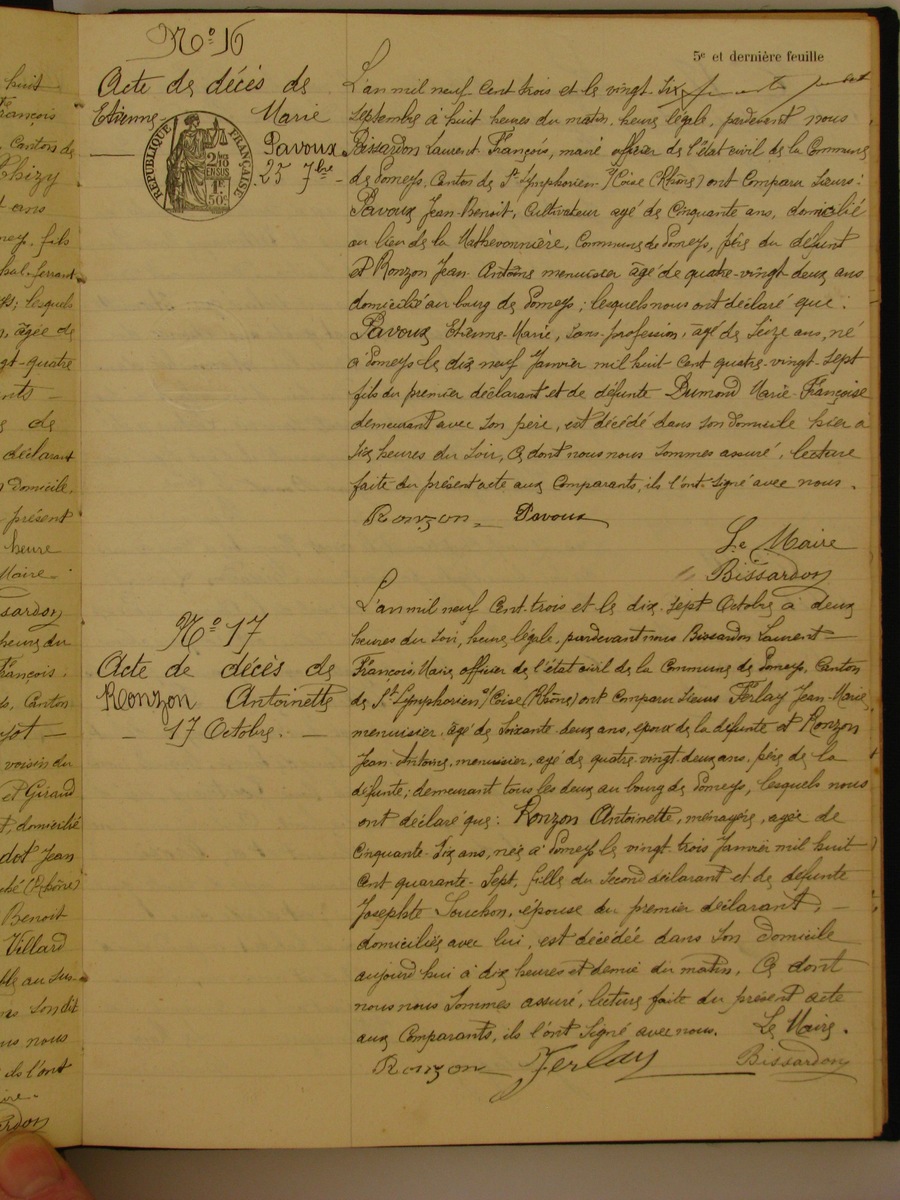 5e et dernière feuille
No 16
Acte de décès de
Etienne Marie
Pavoux
25 7bre
RÉPUBLIQUE FRANÇAISE
L'an mil neuf cent trois et le vingt six
Septembre à huit heures du matin, heure légale, pardevant nous
Bissardon Laurent François, maire officier de l'état civil de la Commune
de Pomeys, Canton de St Symphorien s/ Coise (Rhône) ont Comparu Sieurs :
Pavoux Jean-Benoit, Cultivateur agé de Cinquante ans, domicilié
au lieu de la Mathevonnière, Commune de Pomeys, père du défunt
et Ronzon Jean Antoine menuisier âgé de quatre-vingt-deux ans
domicilié au bourg de Pomeys ; lesquels nous ont déclaré que :
Pavoux Etienne-Marie, Sans profession, agé de Seize ans, né
à Pomeys le dix neuf Janvier mil huit cent quatre-vingt-Sept
fils du premier déclarant et de défunte Dumond Marie-Françoise
demeurant avec Son père, est décédé dans Son domicile hier à
Six heures du Soir, Ce dont nous nous Sommes assuré, lecture
faite du présent acte aux Comparants, ils l'ont Signé avec nous.
Ronzon Pavoux
Le Maire
Bissardon
No 17
Acte de décès de
Ronzon Antoinette
17 Octobre.
L'an mil neuf Cent-trois et le dix-Sept Octobre à deux
heures du Soir, heure légale, pardevant nous Bissardon Laurent
François Maire officier de l'état civil de la Commune de Pomeys, Canton
de St Symphorien s/ Coise (Rhône) ont Comparu Sieurs Ferlay Jean-Marie
menuisier, âgé de Soixante-deux ans, époux de la défunte et Ronzon
Jean-Antoine, menuisier, agé de quatre-vingt-deux ans, père de la
défunte ; demeurant tous les deux au bourg de Pomeys, lesquels nous
ont déclaré que : Ronzon Antoinette, ménagère, agée de
Cinquante-Six ans, née à Pomeys le vingt trois Janvier mil huit
Cent quarante-Sept, fille du Second déclarant et de défunte
Josephte Souchon, épouse du premier déclarant,
domiciliée avec lui, est décédée dans Son domicile
aujourd'hui à dix heures et demie du matin. Ce dont
nous nous Sommes assuré, lecture faite du présent acte
aux Comparants, ils l'ont Signé avec nous. Le Maire.
Ronzon Ferlay Bissardon